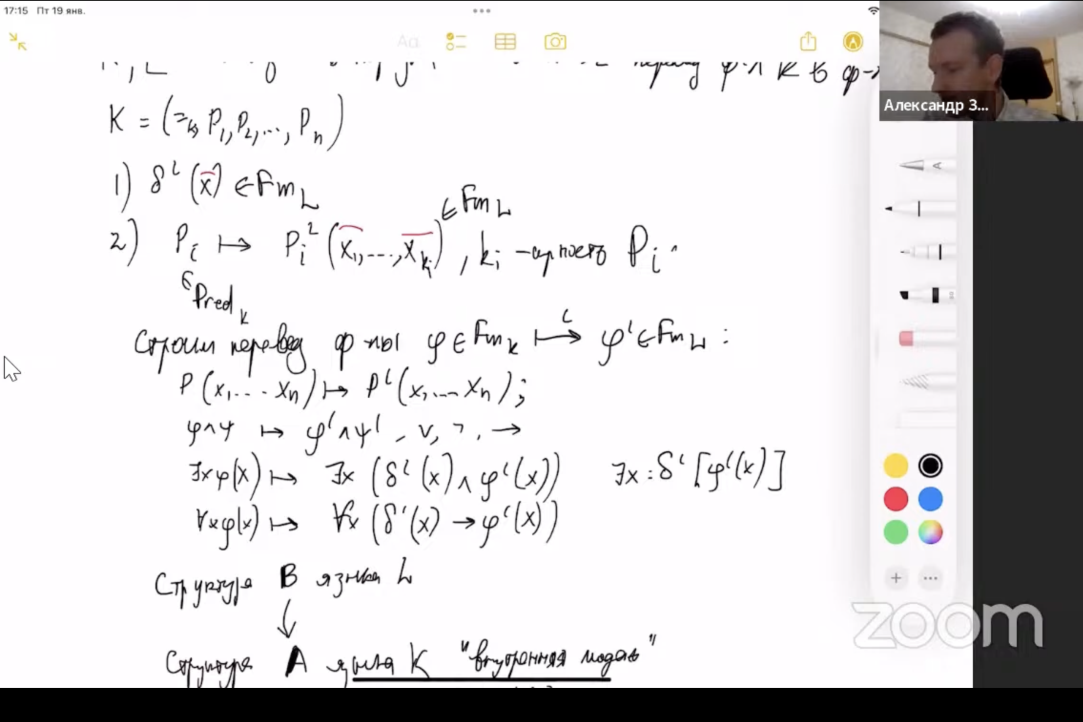 17:15 Пт 19 янв.
Александр З...
K = (=ₖ, P₁, P₂, ..., Pₙ)
1) δᴸ(x̄) ∈ Fm_L
2) Pᵢ ↦ Pᵢᴸ(x₁, ..., x_kᵢ) ∈ Fm_L, kᵢ – арность Pᵢ.
∈ Pred_K
Строим перевод ф-лы φ ∈ Fm_K ↦ φᴸ ∈ Fm_L :
P(x₁...xₙ) ↦ Pᴸ(x₁...xₙ);
φ∧ψ ↦ φᴸ∧ψᴸ, ∨, ¬, →
∃xφ(x) ↦ ∃x (δᴸ(x) ∧ φᴸ(x)) ∃x : δᴸ [φᴸ(x)]
∀xφ(x) ↦ ∀x (δᴸ(x) → φᴸ(x))
Структура B языка L
↓
Структура A языка K "внутренняя модель"
zoom